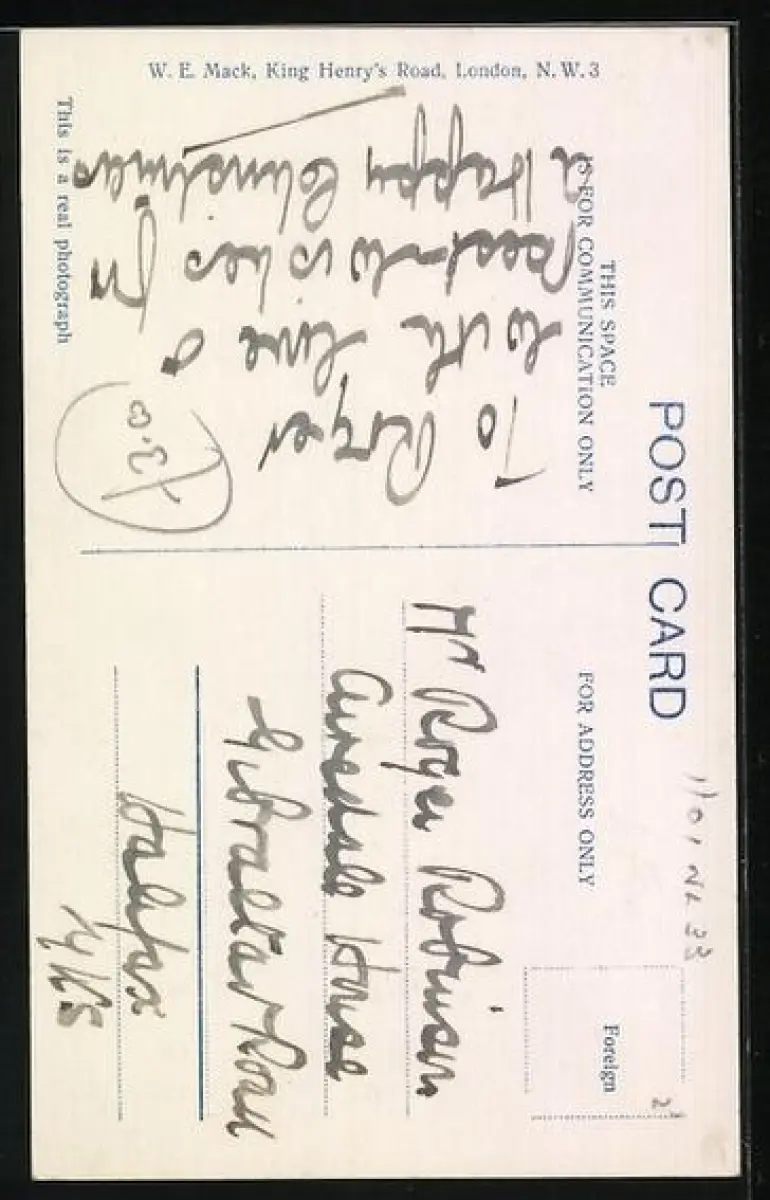 POST CARD
THIS SPACE
IS FOR COMMUNICATION ONLY
FOR ADDRESS ONLY
Foreign
To Roger
with love &
best wishes for
a Happy Christmas
£3.00
Mr Roger Robinson
Airedale House
Gibraltar Road
Halifax
Yks
W. E. Mack, King Henry's Road, London, N.W.3
This is a real photograph